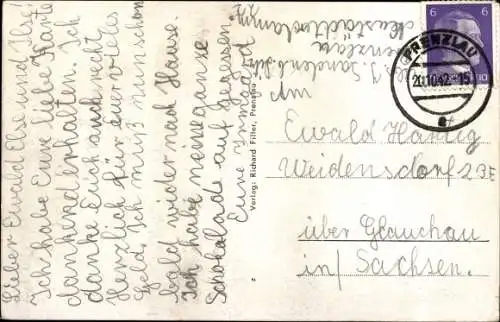 Lieber Ewald Else und Ilse!
Ich habe Eure liebe Karte
dankend erhalten. Ich
danke Euch auch recht
Herzlich für Euer vieles
Geld. Ich muß nun schon
bald wider nach Hause.
Ich habe meine ganze
Schokalade auf gegessen.
Eure Irmgad
Verlag: Richard Filler, Prenzlau
PRENZLAU
20.10.42.-15
a
6
6
An
Ewald Hartig
Weidensdorf 23E
über Glauchau
in/ Sachsen.